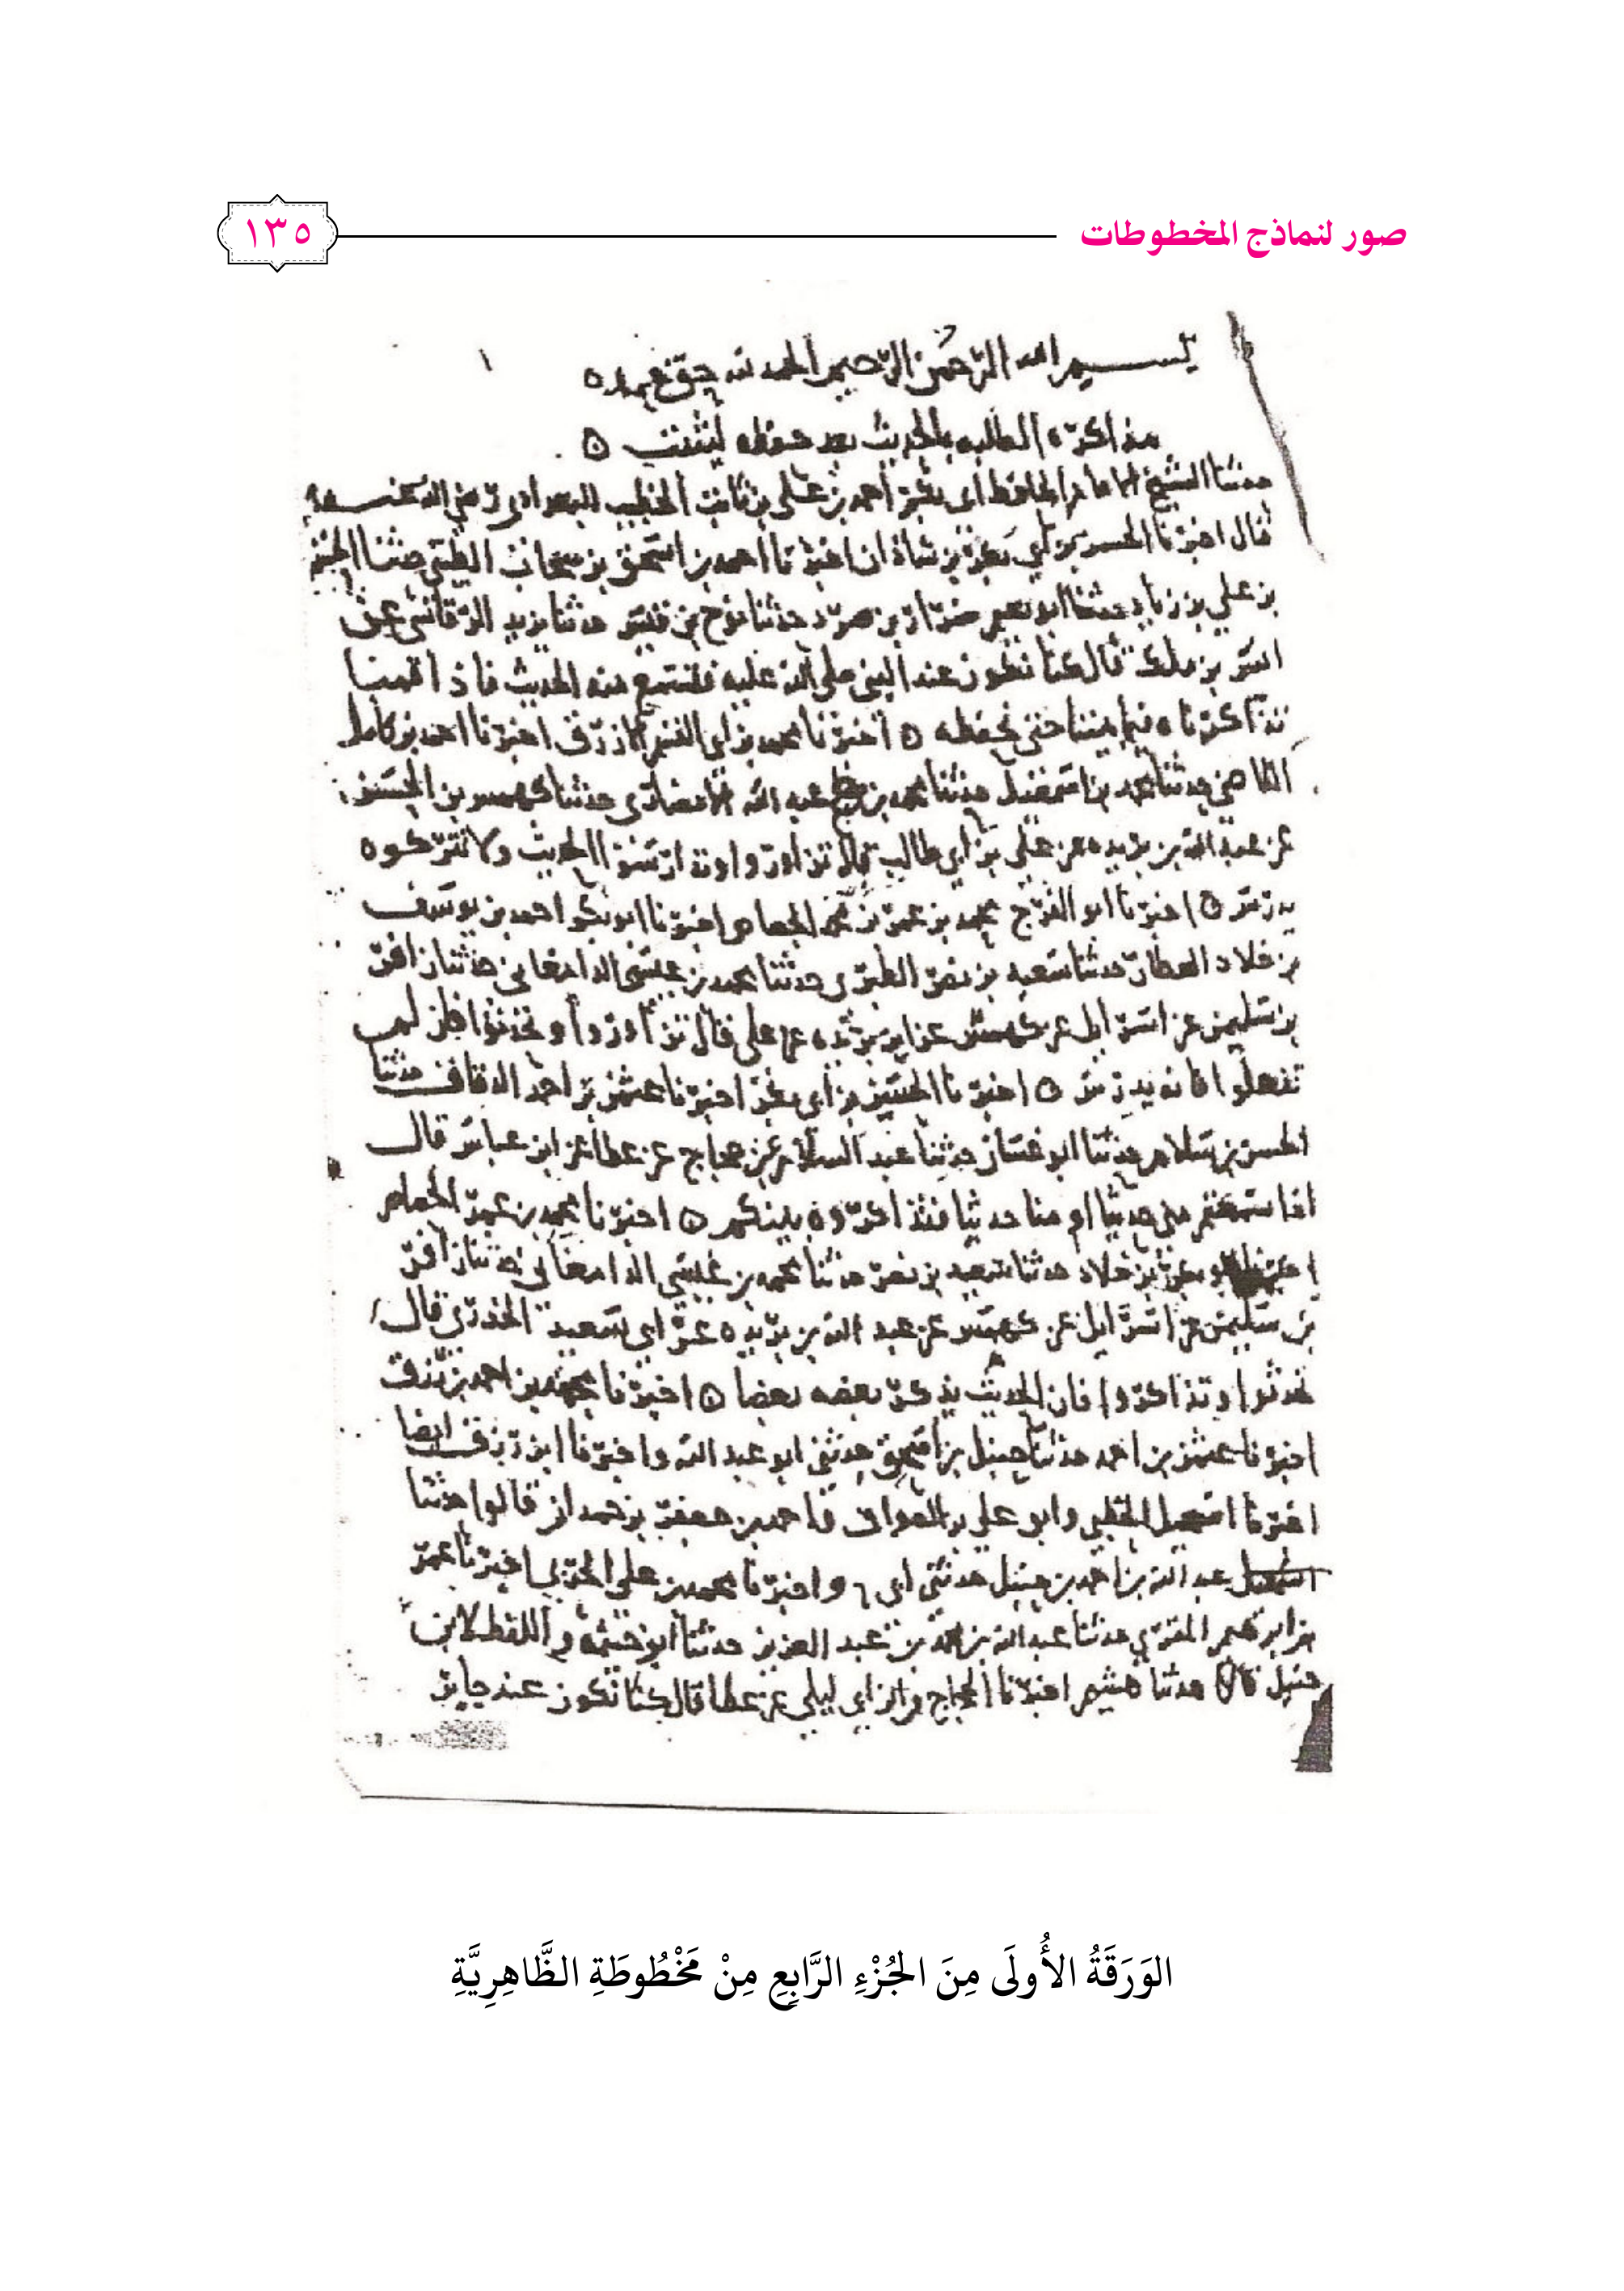 صور لنماذج المخطوطات
١٣٥
بسم الله الرحمن الرحيم الحمد لله حق حمده
مذاكرة الطلبه بالحديث بعد حفظه ليثبت
حدثنا الشيخ الامام الحافظ ابى بكر احمد بن على بن ثابت الخطيب البغدادى رضي الله عنه
قال اخبرنا الحسن بن ابي بكر بن شاذان اخبرنا احمد بن اسحق بن نيخاب الطيبي حدثنا الحسن
بن علي بن زياد حدثنا ابو نعيم ضرار بن صرد حدثنا نوح بن قيس حدثنا يزيد الرقاشي عن
انس بن ملك قال كنا نكون عند النبى صلى الله عليه فنسمع منه الحديث فاذا قمنا
تذاكرناه فيما بيننا حتى نحفظه اخبرنا محمد بن ابى القسم الازرق اخبرنا احمد بن كامل
القاضي حدثنا محمد بن اسمعيل حدثنا محمد بن عبد الله الانصارى حدثنا كهمس بن الحسن
عن عبد الله بن بريده عن على بن ابي طالب قال تزاوروا وتدارسوا الحديث ولا تتركوه
يدرس اخبرنا ابو الفرج محمد بن عمر بن محمد الجصاص اخبرنا ابو بكر احمد بن يوسف
بن خلاد العطار حدثنا سعيد بن نصر الطبرى حدثنا محمد بن عيسى الدامغانى حدثنا زافر
بن سليمن عن اسرايل عن كهمس عن ابن بريده عن على قال تزاوروا وتحدثوا فان لم
تفعلوا فانه يدرس اخبرنا الحسن بن ابى بكر اخبرنا عثمن بن احمد الدقاق حدثنا
الحسن بن سلام حدثنا ابو غسان حدثنا عبد السلام عن حجاج عن عطا عن ابن عباس قال
اذا سمعتم منى حديثا او منا حديثا فتذاكروه بينكم اخبرنا محمد بن عمر الجصاص
بكر بن خلاد حدثنا سعيد بن نصر حدثنا محمد بن عيسى الدامغانى حدثنا زافر
بن سليمن عن اسرايل عن كهمس عن عبد الله بن بريده عن ابى سعيد الخدري قال
تحدثوا وتذاكروا فان الحديث يذكر بعضه بعضا اخبرنا محمد بن احمد بن رزق
اخبرنا عثمن بن احمد حدثنا حنبل بن اسحق حدثنى ابو عبد الله واخبرنا ابن رزق ايضا
اخبرنا اسمعيل الخطبي وابو علي بن الصواف واحمد بن جعفر بن حمدان قالوا حدثنا
عبد الله بن احمد بن حنبل حدثنى ابى واخبرنا محمد بن على الحربي اخبرنا عمر
بن ابرهيم المقرى حدثنا عبد الله بن محمد بن عبد العزيز حدثنا ابو خيثمه واللفظ لابن
حنبل قالا حدثنا هشيم اخبرنا الحجاج وابن ابى ليلى عن عطا قال كنا نكون عند جابر
الوَرَقَةُ الأُولَى مِنَ الجُزْءِ الرَّابِعِ مِنْ مَخْطُوطَةِ الظَّاهِرِيَّةِ